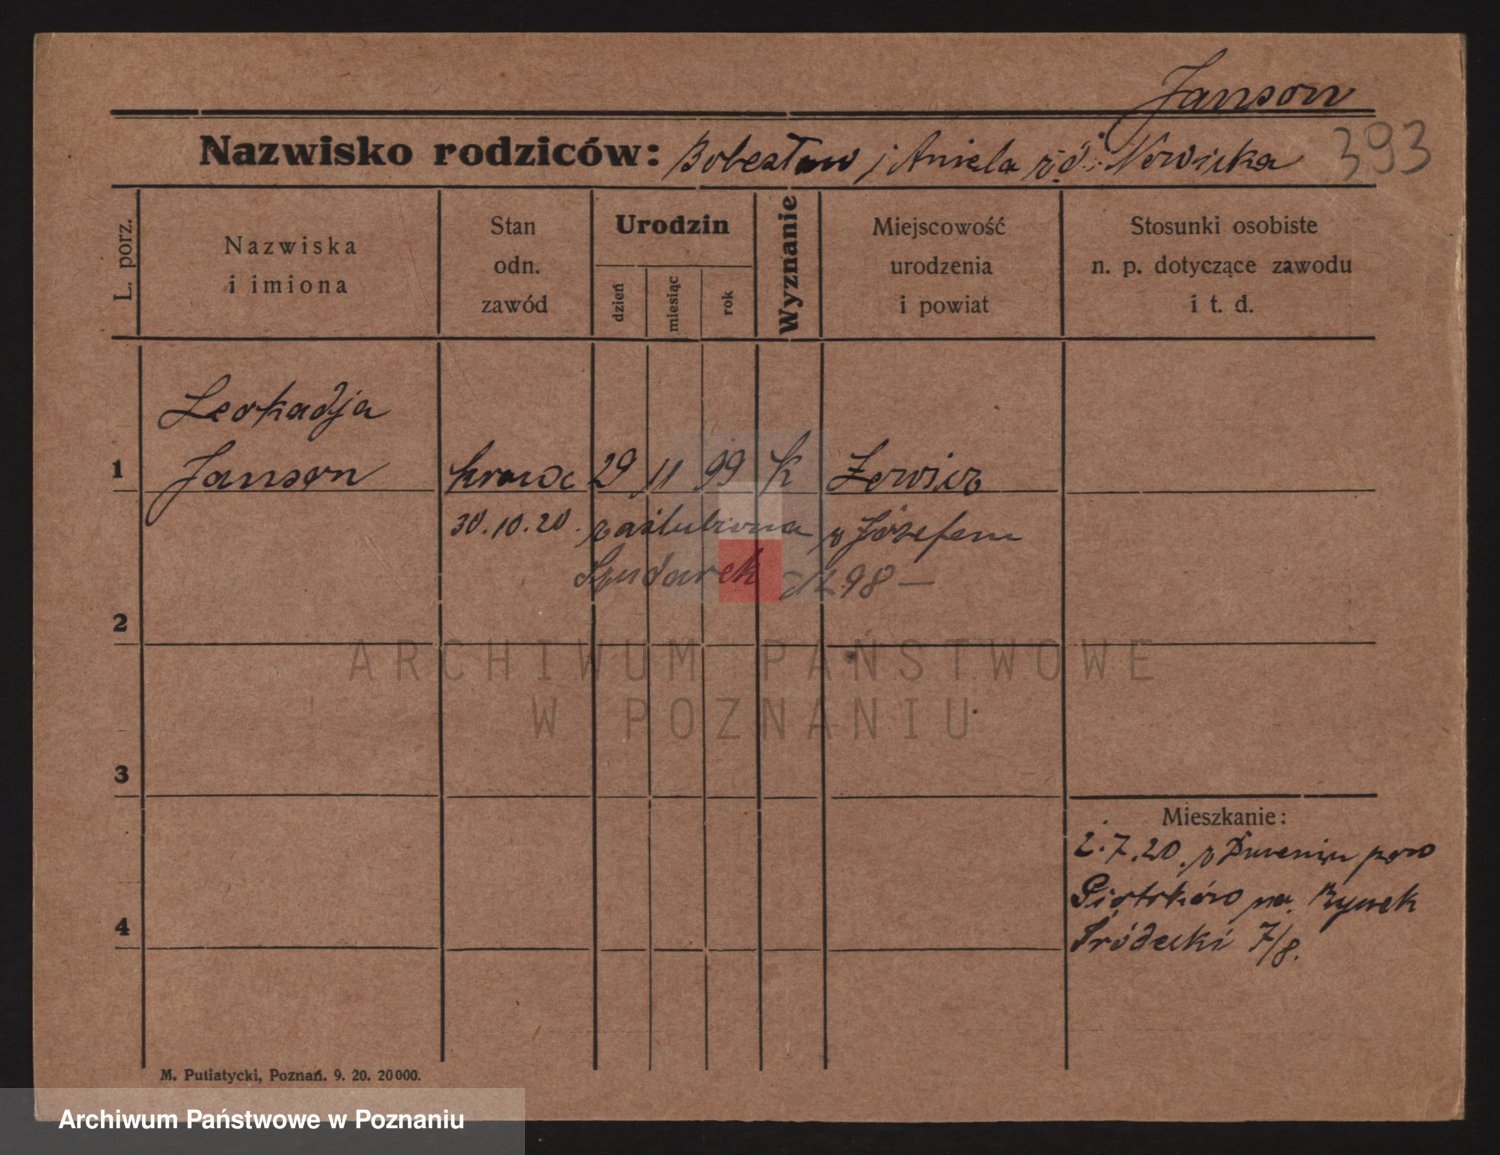 Janson
Nazwisko rodziców: Bolesław i Aniela z d. Nowicka 393
L. porz.
Nazwiska
i imiona
Stan
odn.
zawód
Urodzin
dzień
miesiąc
rok
Wyznanie
Miejscowość
urodzenia
i powiat
Stosunki osobiste
n. p. dotyczące zawodu
i t. d.
Leokadja
1 Janson krawc 29 11 99 k
30.10.20. zaślubiona z Józefem
Szudarek 98 —
2
ARCHIWUM PAŃSTWOWE
W POZNANIU
3
Mieszkanie:
2.7.20. z pow
Piotrków na Rynek
4 Śródecki 7/8.
M. Putiatycki, Poznań. 9. 20. 20000.
Archiwum Państwowe w Poznaniu